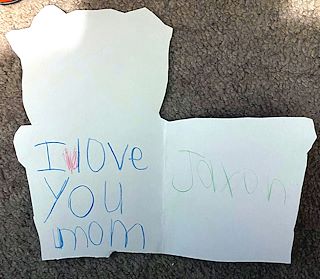 I love
you
mom
Jaxon